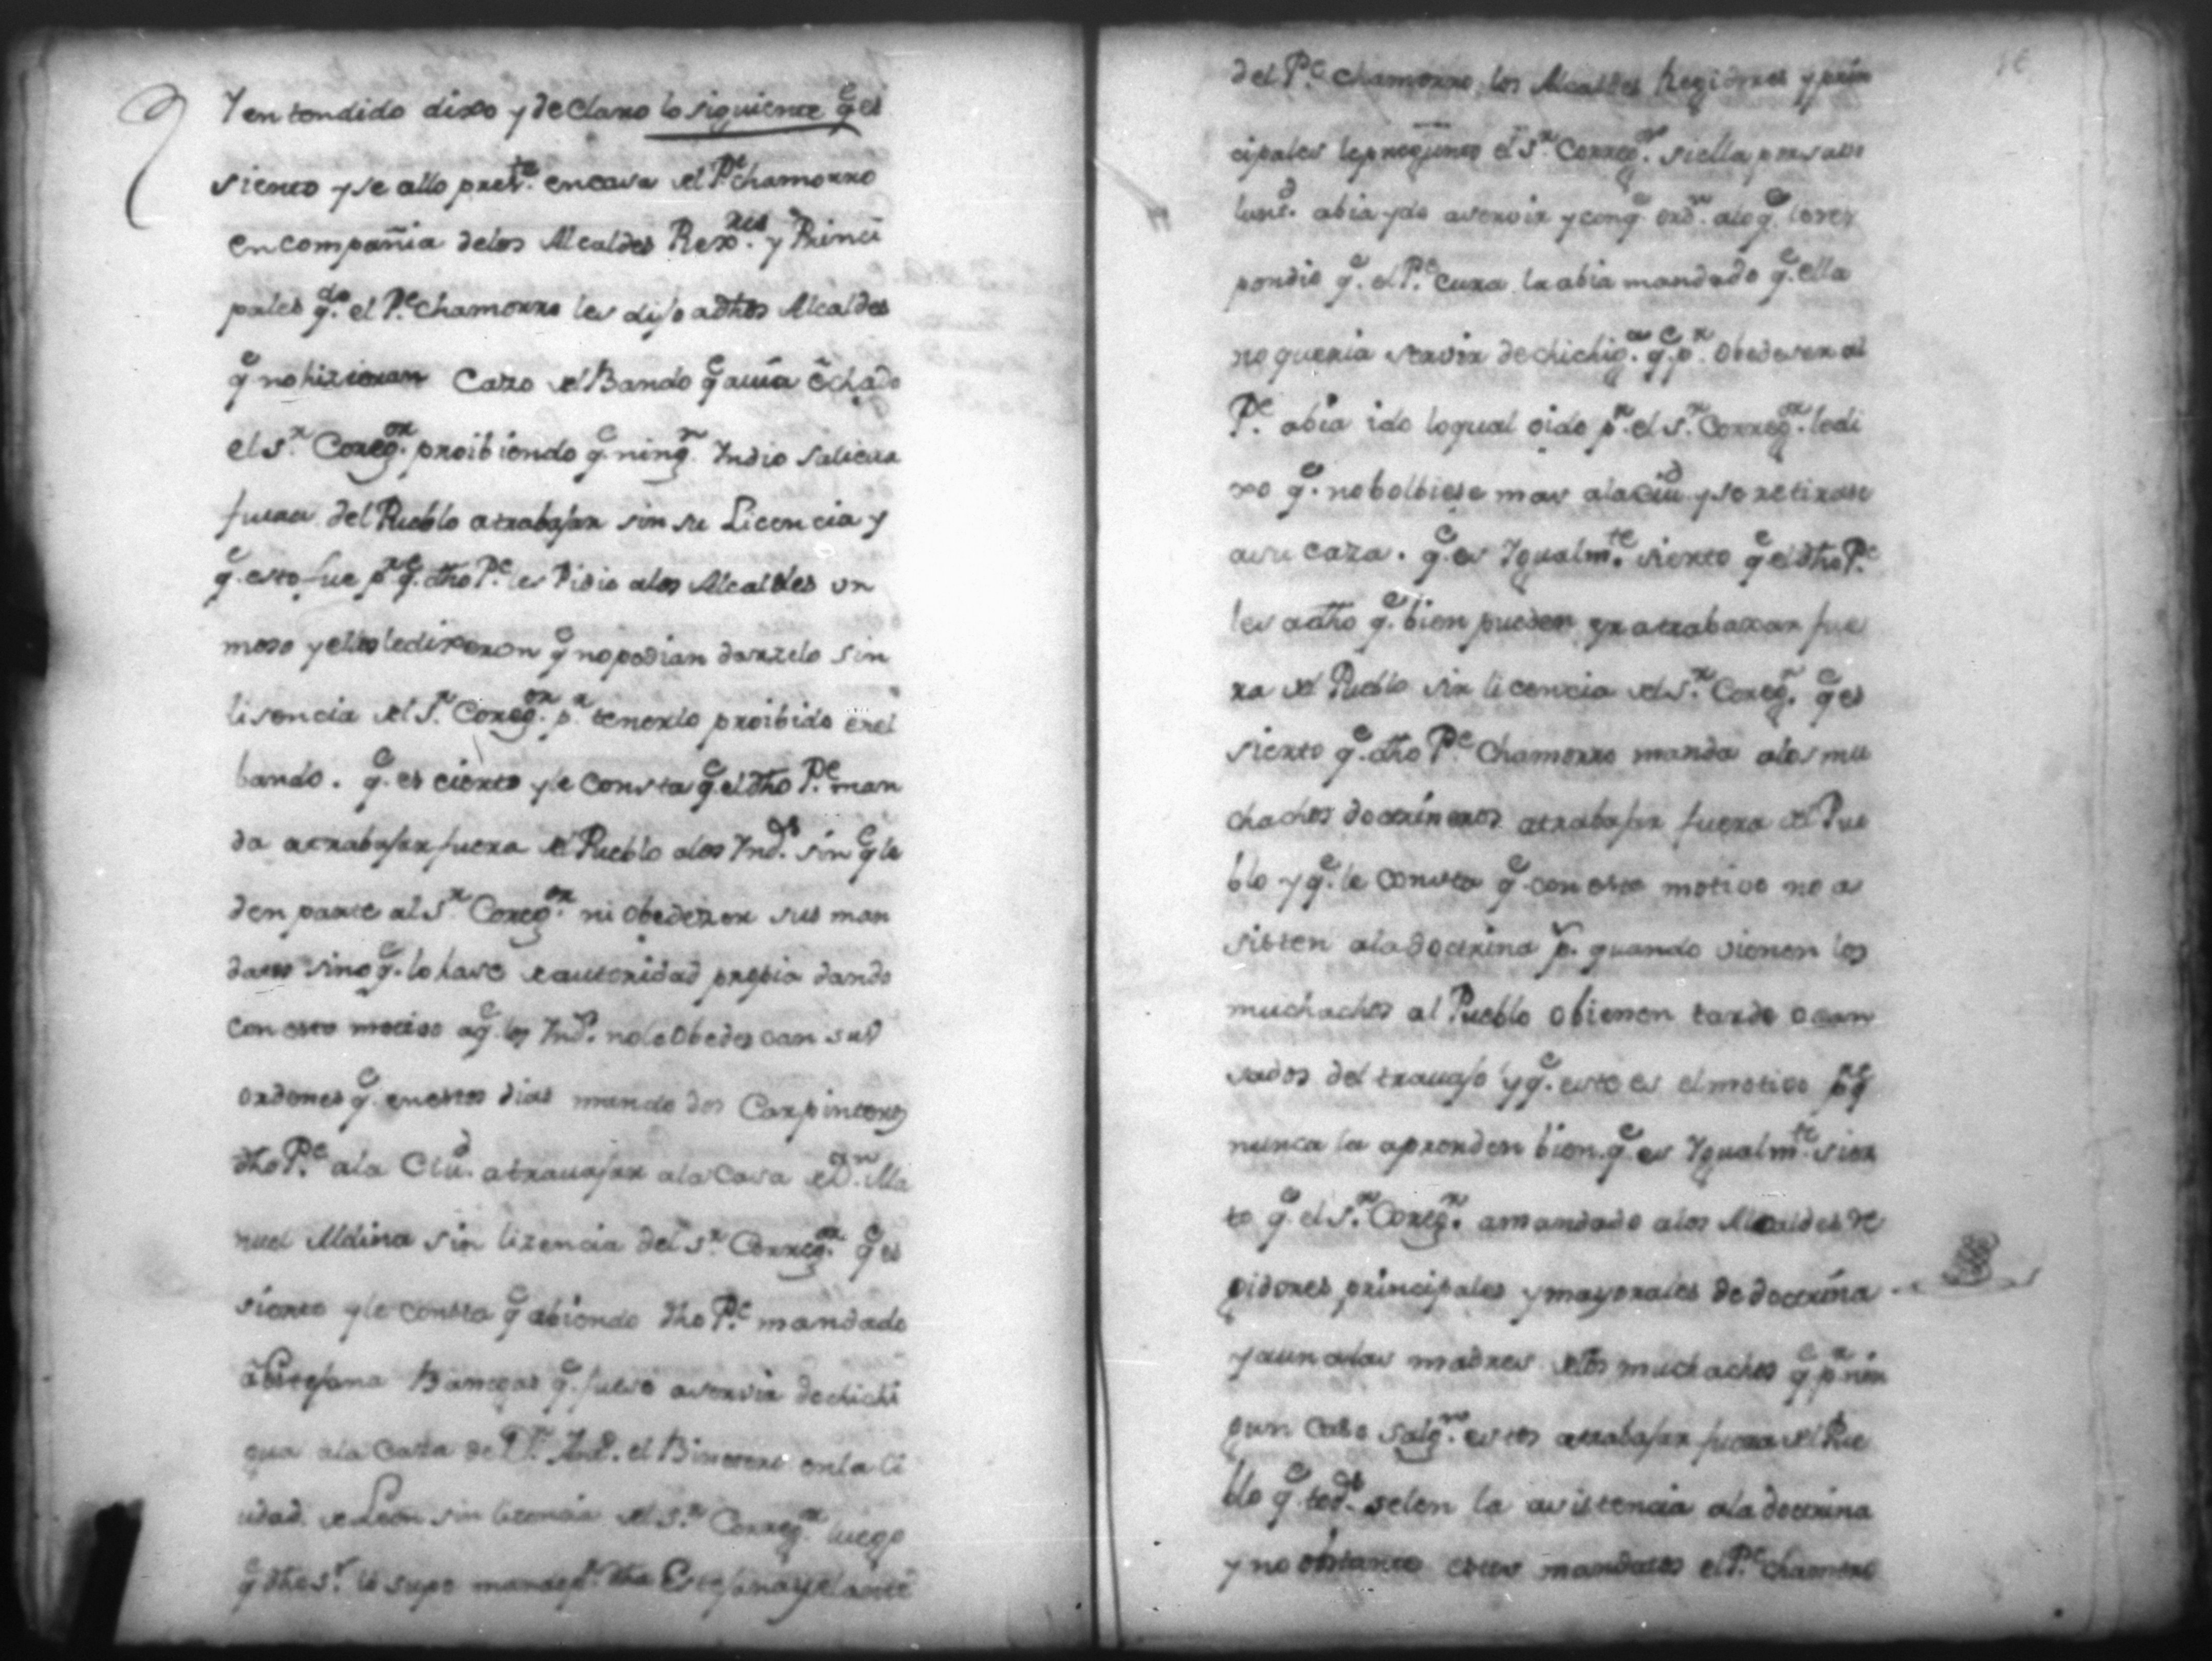 Y entendido dixo y declaro lo siguiente q.e es
sierto y se allo pres.te en casa del P.e chamorro
en compañia delos Alcaldes Rex.res y Princi
pales q.do el P.e chamorro les dijo a dhos Alcaldes
q.e no hizieran Cazo del Bando q.e auia echado
el S.r Coreg.or proibiendo q.e ning.n Indio saliera
fuera del Pueblo a trabajar sin su Licencia y
q.e esto fue p.r q.e dho P.e les Pidio alos Alcaldes un
moso y ellos le dixeron q.e no podian darzelo sin
lisencia del S.r Coreg.or p.r tenerlo proibido en el
bando. q.e es cierto y le consta q.e el dho P.e man
da a trabajar fuera del Pueblo alos Ind.os sin q.e le
den parte al S.r Coreg.or ni obedezcan sus man
datos sino q.e lo hase de autoridad propia dando
con esto motivo a q.e los Ind.s no le obedescan sus
ordenes q.e en estos dias mando dos Carpinteros
dho P.e ala Ciu.d a trauajar ala Casa de D.n Ma
nuel Aldina sin lizencia del S.r Correg.or q.e es
sierto y le consta q.e abiendo dho P.e mandado
a Estefana Banegas q.e fuese a servir de chichi
gua ala Caza de D.n And.s el Binterero en la Ci
udad de Leon sin lizencia del S.r Correg.or luego
q.e dho S.r lo supo mando p.r dha Estefana y delante
del P.e chamorro, los Alcaldes Regidores y prin
cipales le pregunto el S.r Correg.or si ella por su vo
lunt.d abia ydo a servir y con q.e ord.n alo q.e le res
pondio q.e el P.e Cura la abia mandado q.e ella
no queria servir de chichig.a q.e p.r obedeser al
P.e abia ido lo qual oido p.r el S.r Correg.or le di
xo q.e no bolbiese mas ala Ciu.d y se retirase
a su caza. q.e es Igualm.te sierto q.e el dho P.e
les a dho q.e bien pueden yr a trabaxar fue
ra del Pueblo sin licencia del S.r Coreg.r q.e es
sierto q.e dho P.e Chamorro manda alos mu
chachos doctrineros a trabajar fuera del Pue
blo y q.e le consta q.e con este motivo no a
sisten ala doctrina p.r quando vienen los
muchachos al Pueblo o bienen tarde o can
sados del trauajo y q.e este es el motivo p.r q.e
nunca la aprenden bien. q.e es Igualm.te sier
to q.e el S.r Coreg.r a mandado alos Alcaldes Re
gidores principales y mayorales de doctrina
y aun alas madres delos muchachos q.e p.r nin
gun caso salg.n estos a trabajar fuera del Pue
blo q.e tod.s selen la asistencia ala doctrina
y no obstante estos mandatos el P.e chamorro